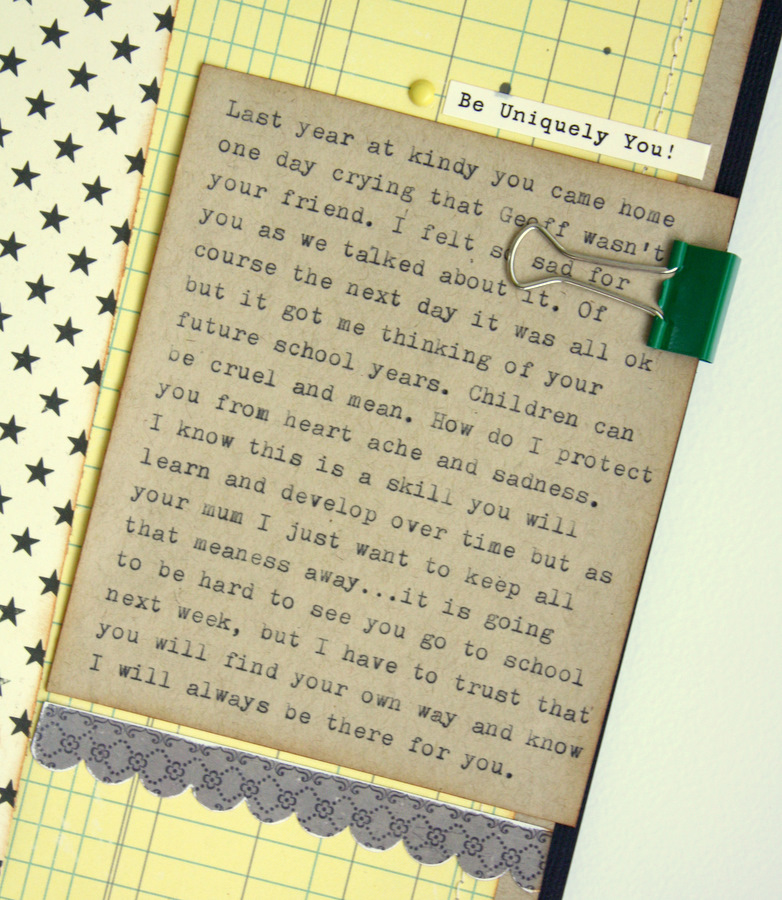 Be Uniquely You!
Last year at kindy you came home
one day crying that Geoff wasn't
your friend. I felt so sad for
you as we talked about it. Of
course the next day it was all ok
but it got me thinking of your
future school years. Children can
be cruel and mean. How do I protect
you from heart ache and sadness.
I know this is a skill you will
learn and develop over time but as
your mum I just want to keep all
that meaness away...it is going
to be hard to see you go to school
next week, but I have to trust that
you will find your own way and know
I will always be there for you.